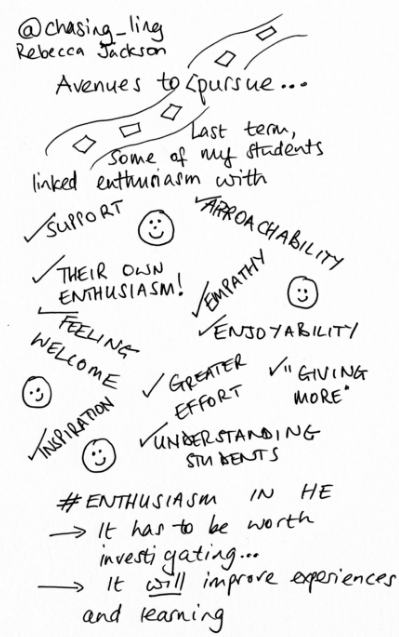 @chasing_ling
Rebecca Jackson
Avenues to pursue...
Last term,
some of my students
linked enthusiasm with
SUPPORT
APPROACHABILITY
THEIR OWN
ENTHUSIASM!
EMPATHY
FEELING
WELCOME
ENJOYABILITY
GREATER
EFFORT
"GIVING
MORE"
INSPIRATION
UNDERSTANDING
STUDENTS
#ENTHUSIASM IN HE
→ It has to be worth
investigating...
→ It will improve experiences
and learning